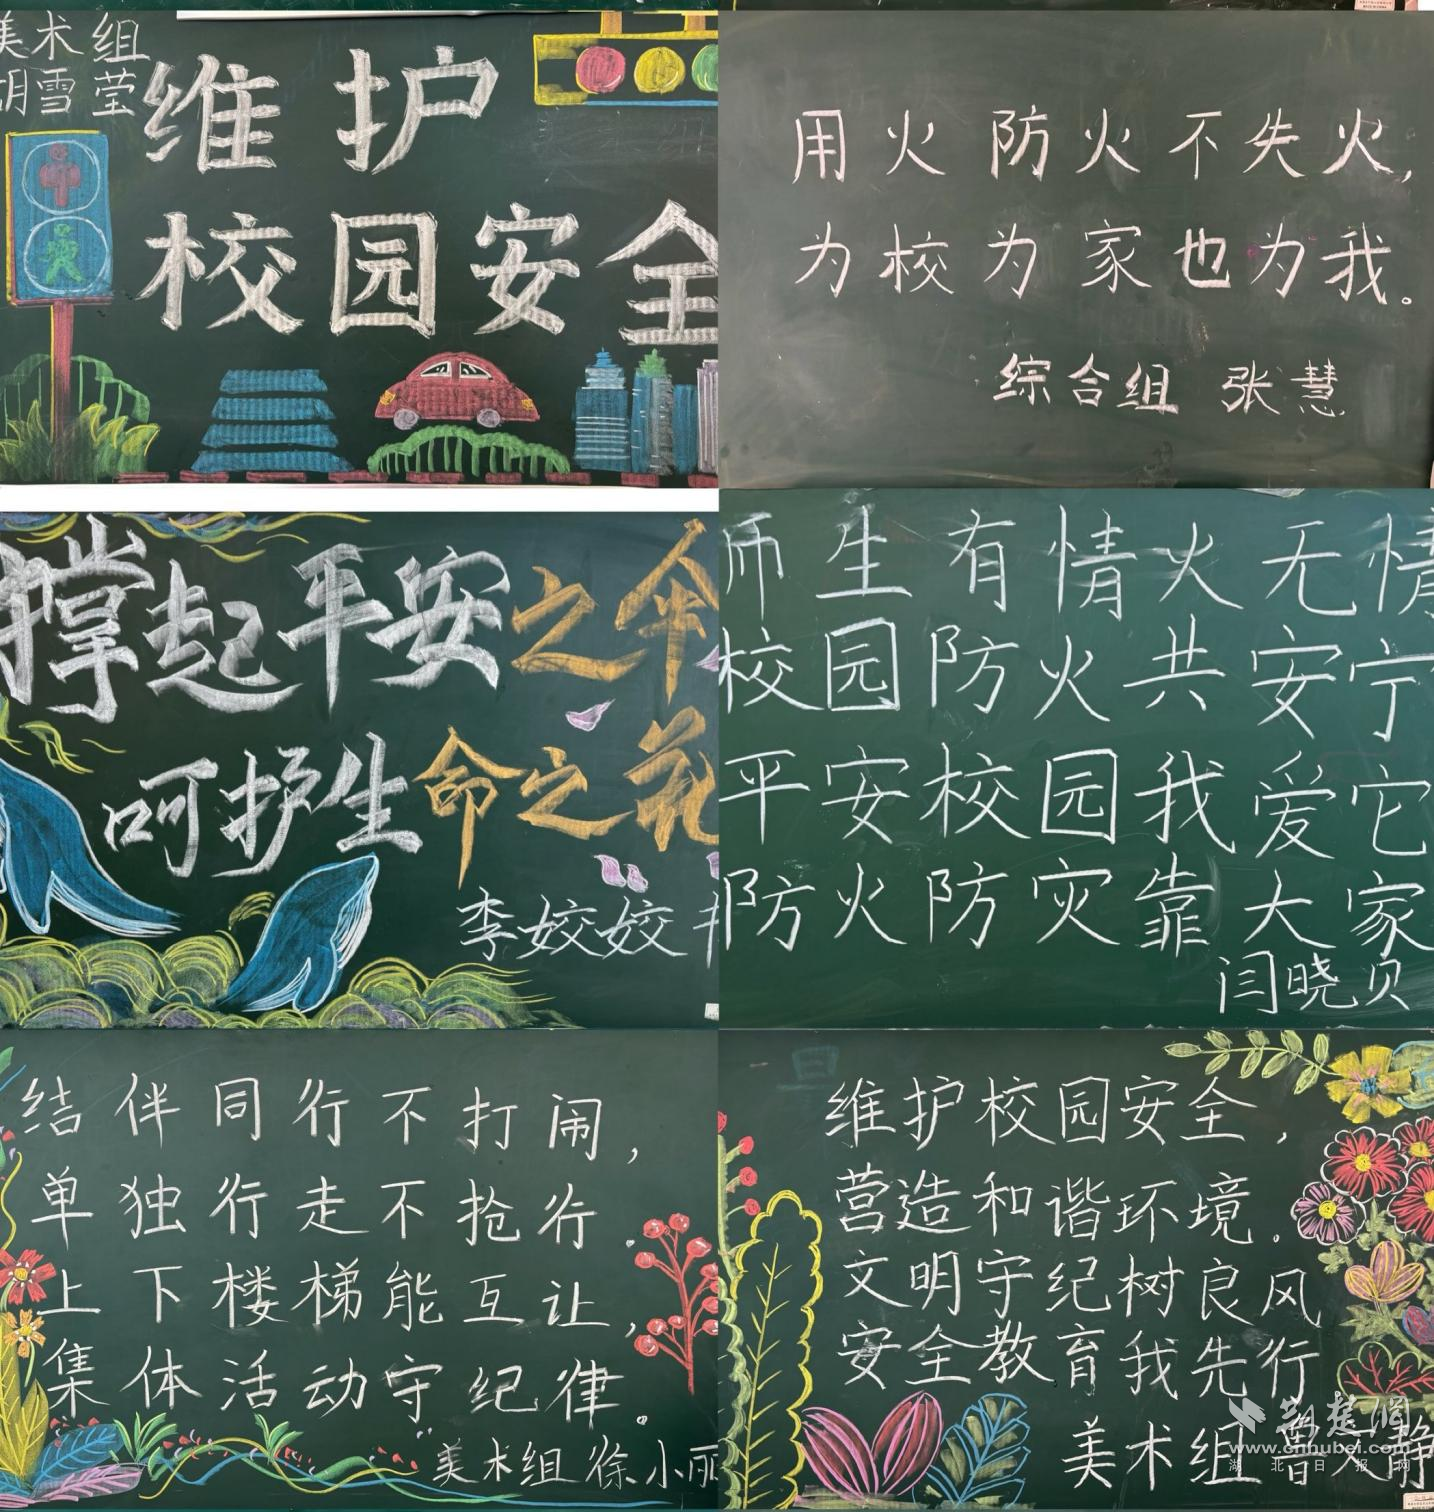 美术组
胡雪莹
维护
校园安全
用火防火不失火,
为校为家也为我。
综合组 张慧
撑起平安之伞
呵护生命之花
李姣姣
师生有情火无情
校园防火共安宁
平安校园我爱它
防火防灾靠大家
闫晓贝
结伴同行不打闹,
单独行走不抢行.
上下楼梯能互让,
集体活动守纪律.
美术组 徐小丽
维护校园安全,
营造和谐环境.
文明守纪树良风
安全教育我先行
美术组 静
荆楚网
www.cnhubei.com
湖北日报网